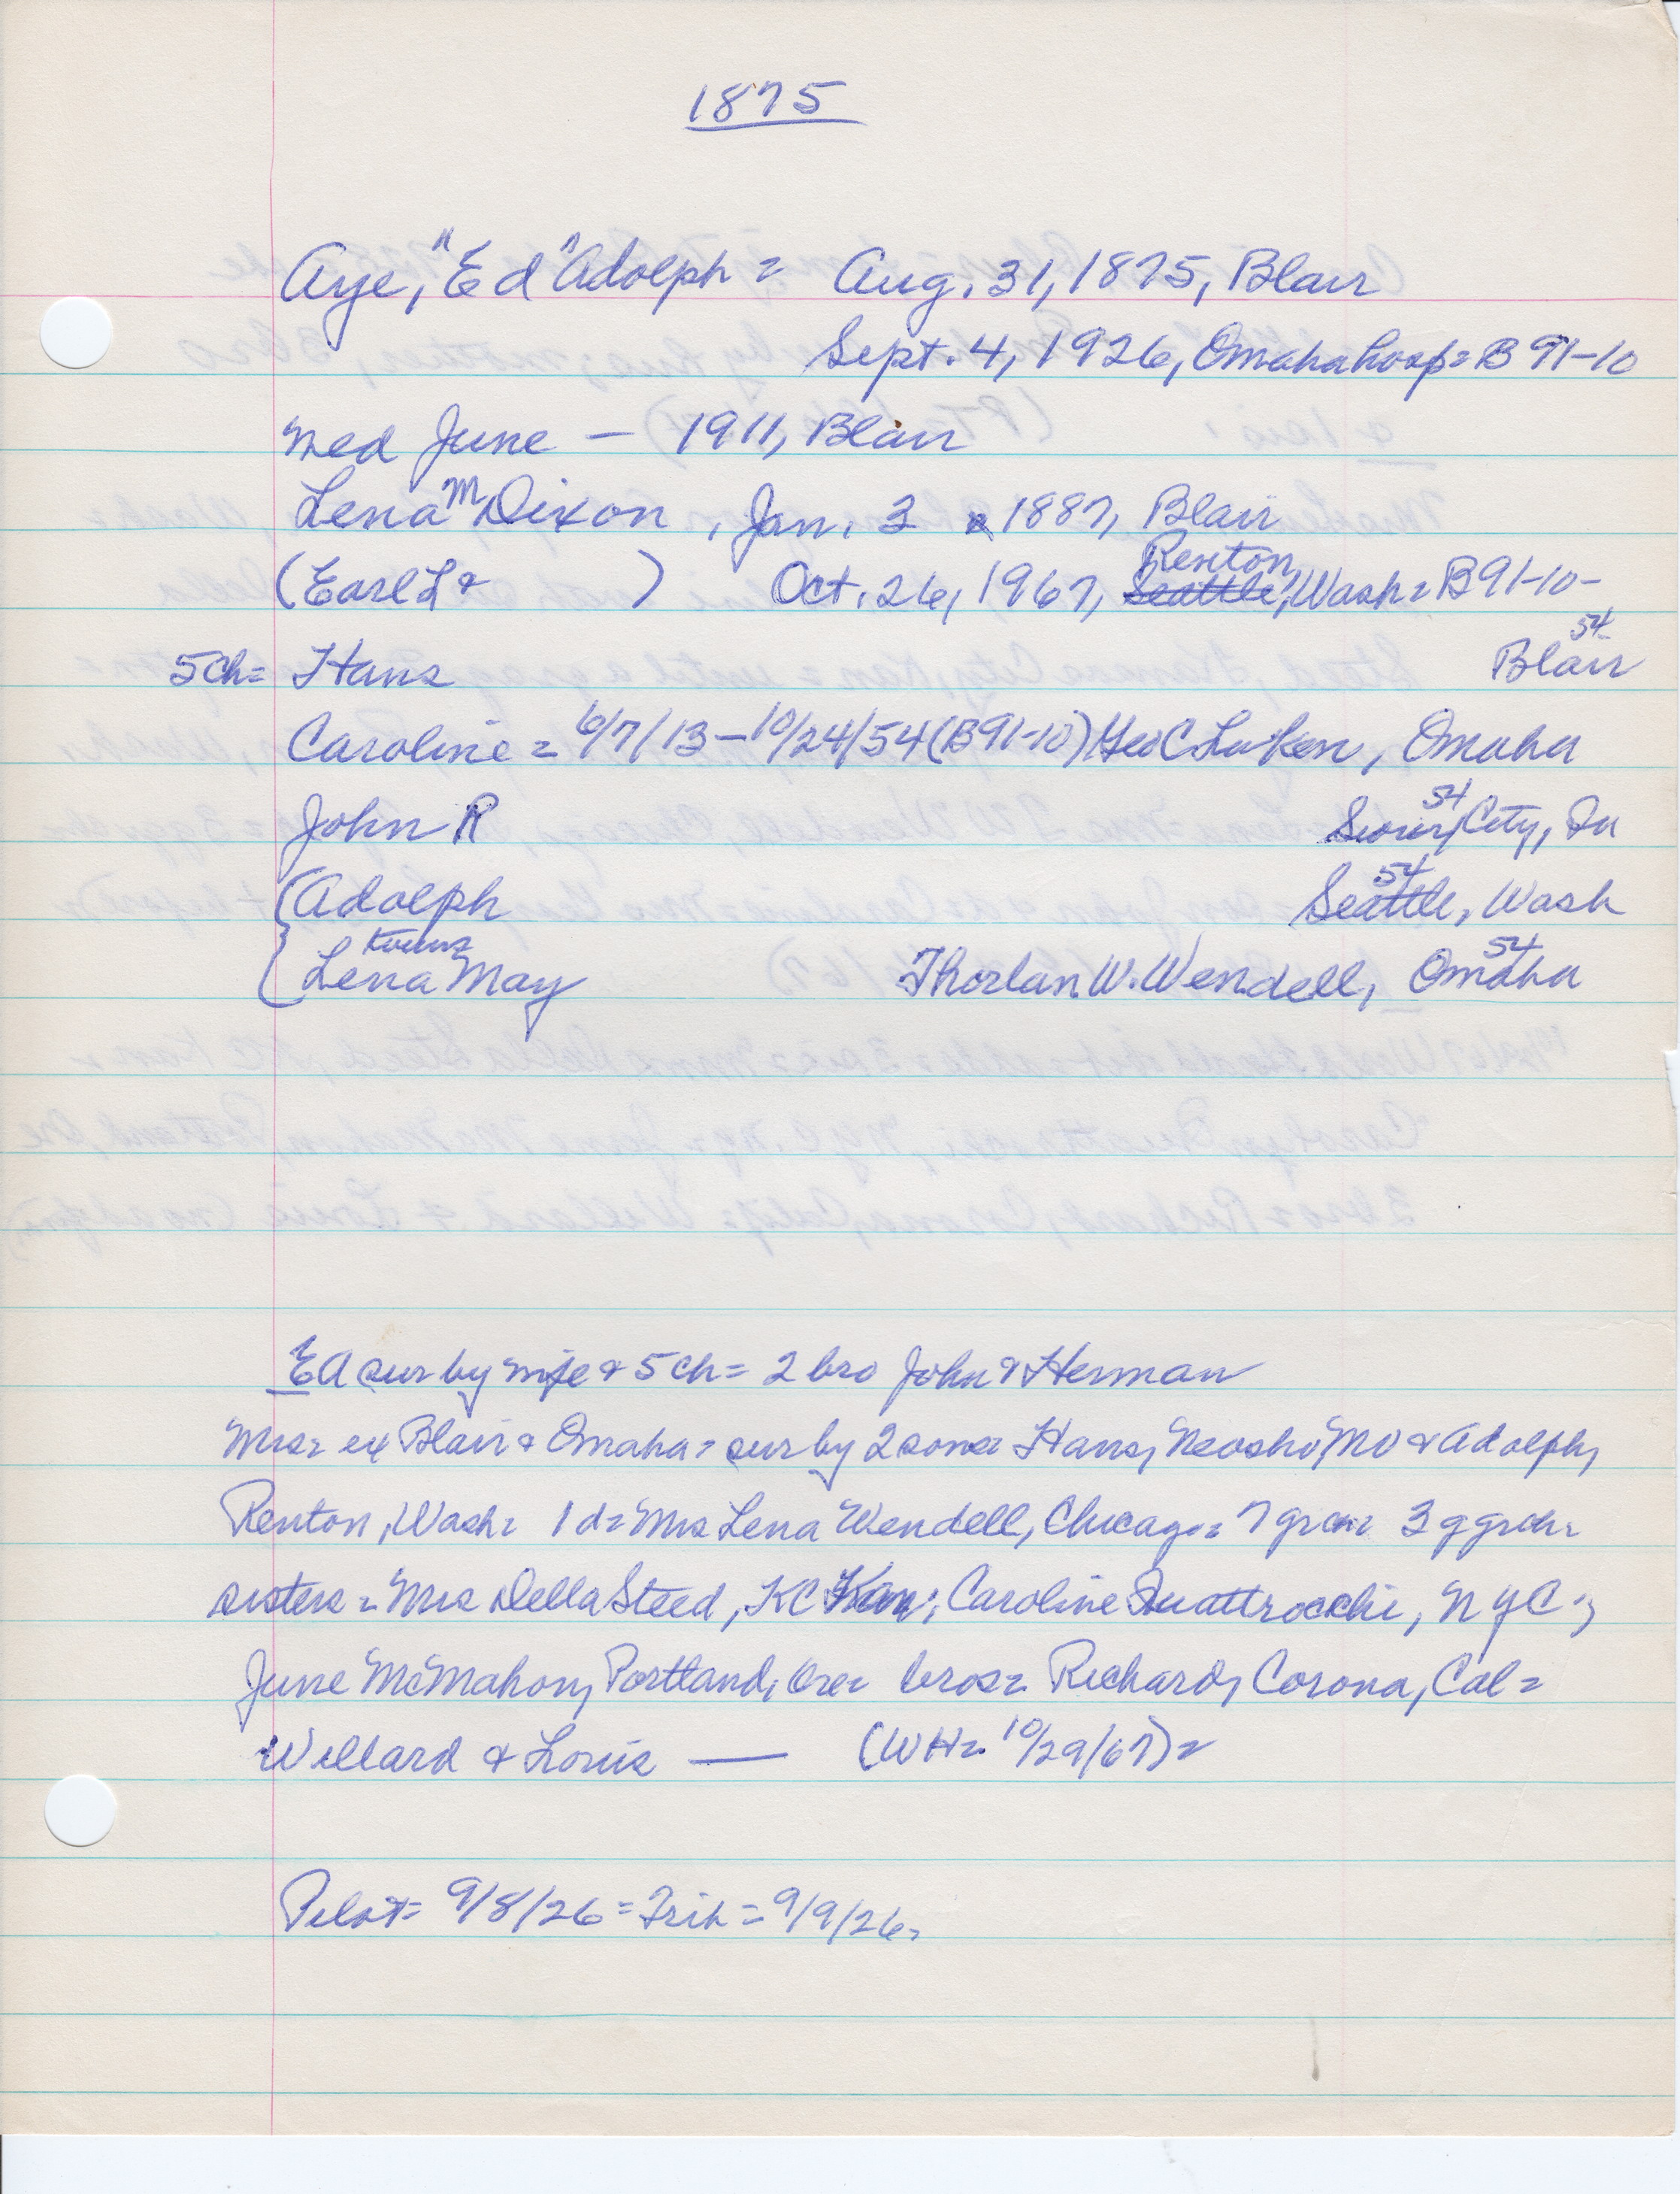 1875
Aye, "Ed" Adolph = Aug. 31, 1875, Blair
Sept. 4, 1926, Omaha hosp = B 91-10
med June — 1911, Blair
Lena M Dixon, Jan. 3 1887, Blair
(Earl L & ) Oct. 26, 1967, Seattle, Renton, Wash = B91-10-
5ch= Hans Blair 54
Caroline = 6/7/13 - 10/24/54 (B91-10) Geo C Luken, Omaha
John R Sioux City, Ia 54
{Adolph Seattle, Wash 54
twins
{Lena May Thorlan W. Wendell, Omaha 54
Ed sur by wife & 5 ch = 2 bro John & Herman
Mrs = ex Blair & Omaha = sur by 2 sons = Hans, Neosho, MO & Adolph,
Renton, Wash = 1 d = Mrs Lena Wendell, Chicago = 7 grch = 3 ggrch =
sisters = Mrs Della Steed, KC Kan; Caroline Quattrocchi, NYC;
June McMahon, Portland, Ore = bros = Richard, Corona, Cal =
Willard & Louis — (WH = 10/29/67) =
Pilot = 9/8/26 = Trib = 9/9/26 =